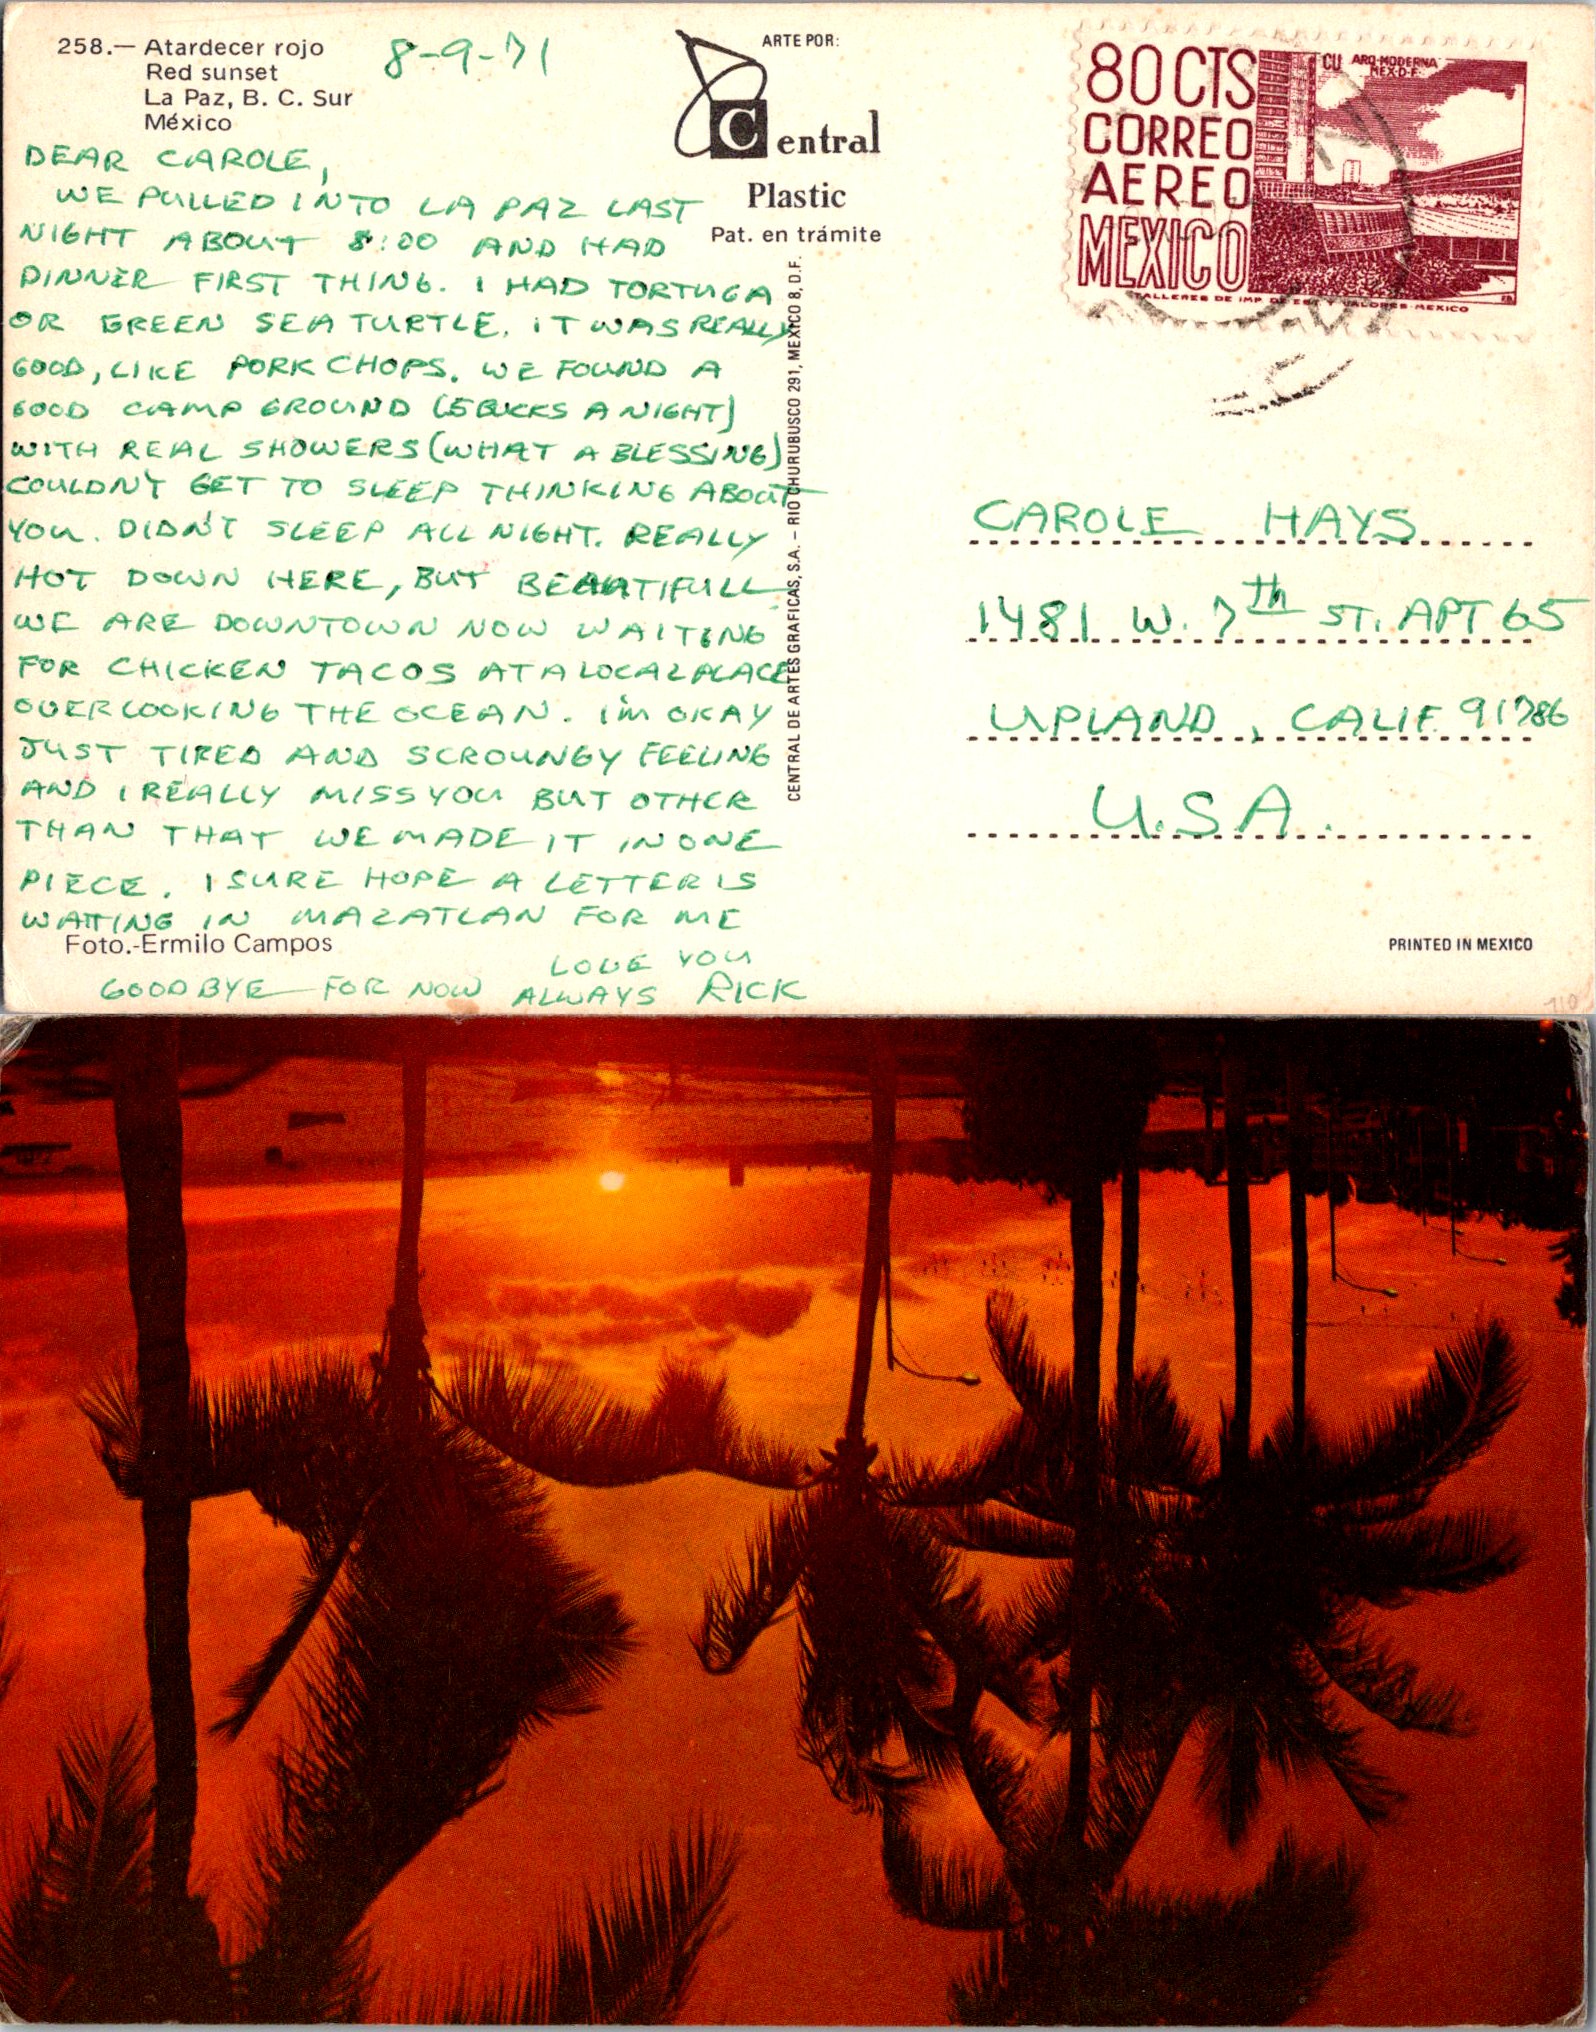 258.— Atardecer rojo
Red sunset
La Paz, B. C. Sur
México
8-9-71
DEAR CAROLE,
WE PULLED INTO LA PAZ LAST
NIGHT ABOUT 8:00 AND HAD
DINNER FIRST THING. I HAD TORTUGA
OR GREEN SEA TURTLE. IT WAS REALLY
GOOD, LIKE PORK CHOPS. WE FOUND A
GOOD CAMP GROUND (5 BUCKS A NIGHT)
WITH REAL SHOWERS (WHAT A BLESSING)
COULDN'T GET TO SLEEP THINKING ABOUT
YOU. DIDN'T SLEEP ALL NIGHT. REALLY
HOT DOWN HERE, BUT BEAUTIFULL
WE ARE DOWNTOWN NOW WAITING
FOR CHICKEN TACOS AT A LOCAL PLACE
OVERLOOKING THE OCEAN. I'M OKAY
JUST TIRED AND SCROUNGY FEELING
AND I REALLY MISS YOU BUT OTHER
THAN THAT WE MADE IT IN ONE
PIECE. I SURE HOPE A LETTER IS
WAITING IN MAZATLAN FOR ME
Foto.-Ermilo Campos
LOVE YOU
GOODBYE FOR NOW ALWAYS RICK
ARTE POR:
Central
Plastic
Pat. en trámite
CENTRAL DE ARTES GRAFICAS, S.A. – RIO CHURUBUSCO 291, MEXICO 8, D.F.
80 CTS
CORREO
AEREO
MEXICO
CU ARQ-MODERNA
MEX-D-F.
TALLERES DE IMP. DE EST. Y VALORES-MEXICO
CAROLE HAYS
1481 W. 7th ST. APT 65
UPLAND, CALIF. 91786
U.S.A.
PRINTED IN MEXICO